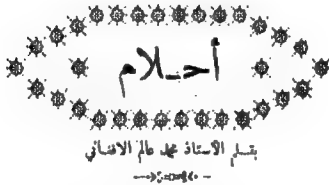 أحـلام
بقلم الأستاذ محمد عالم الافغاني